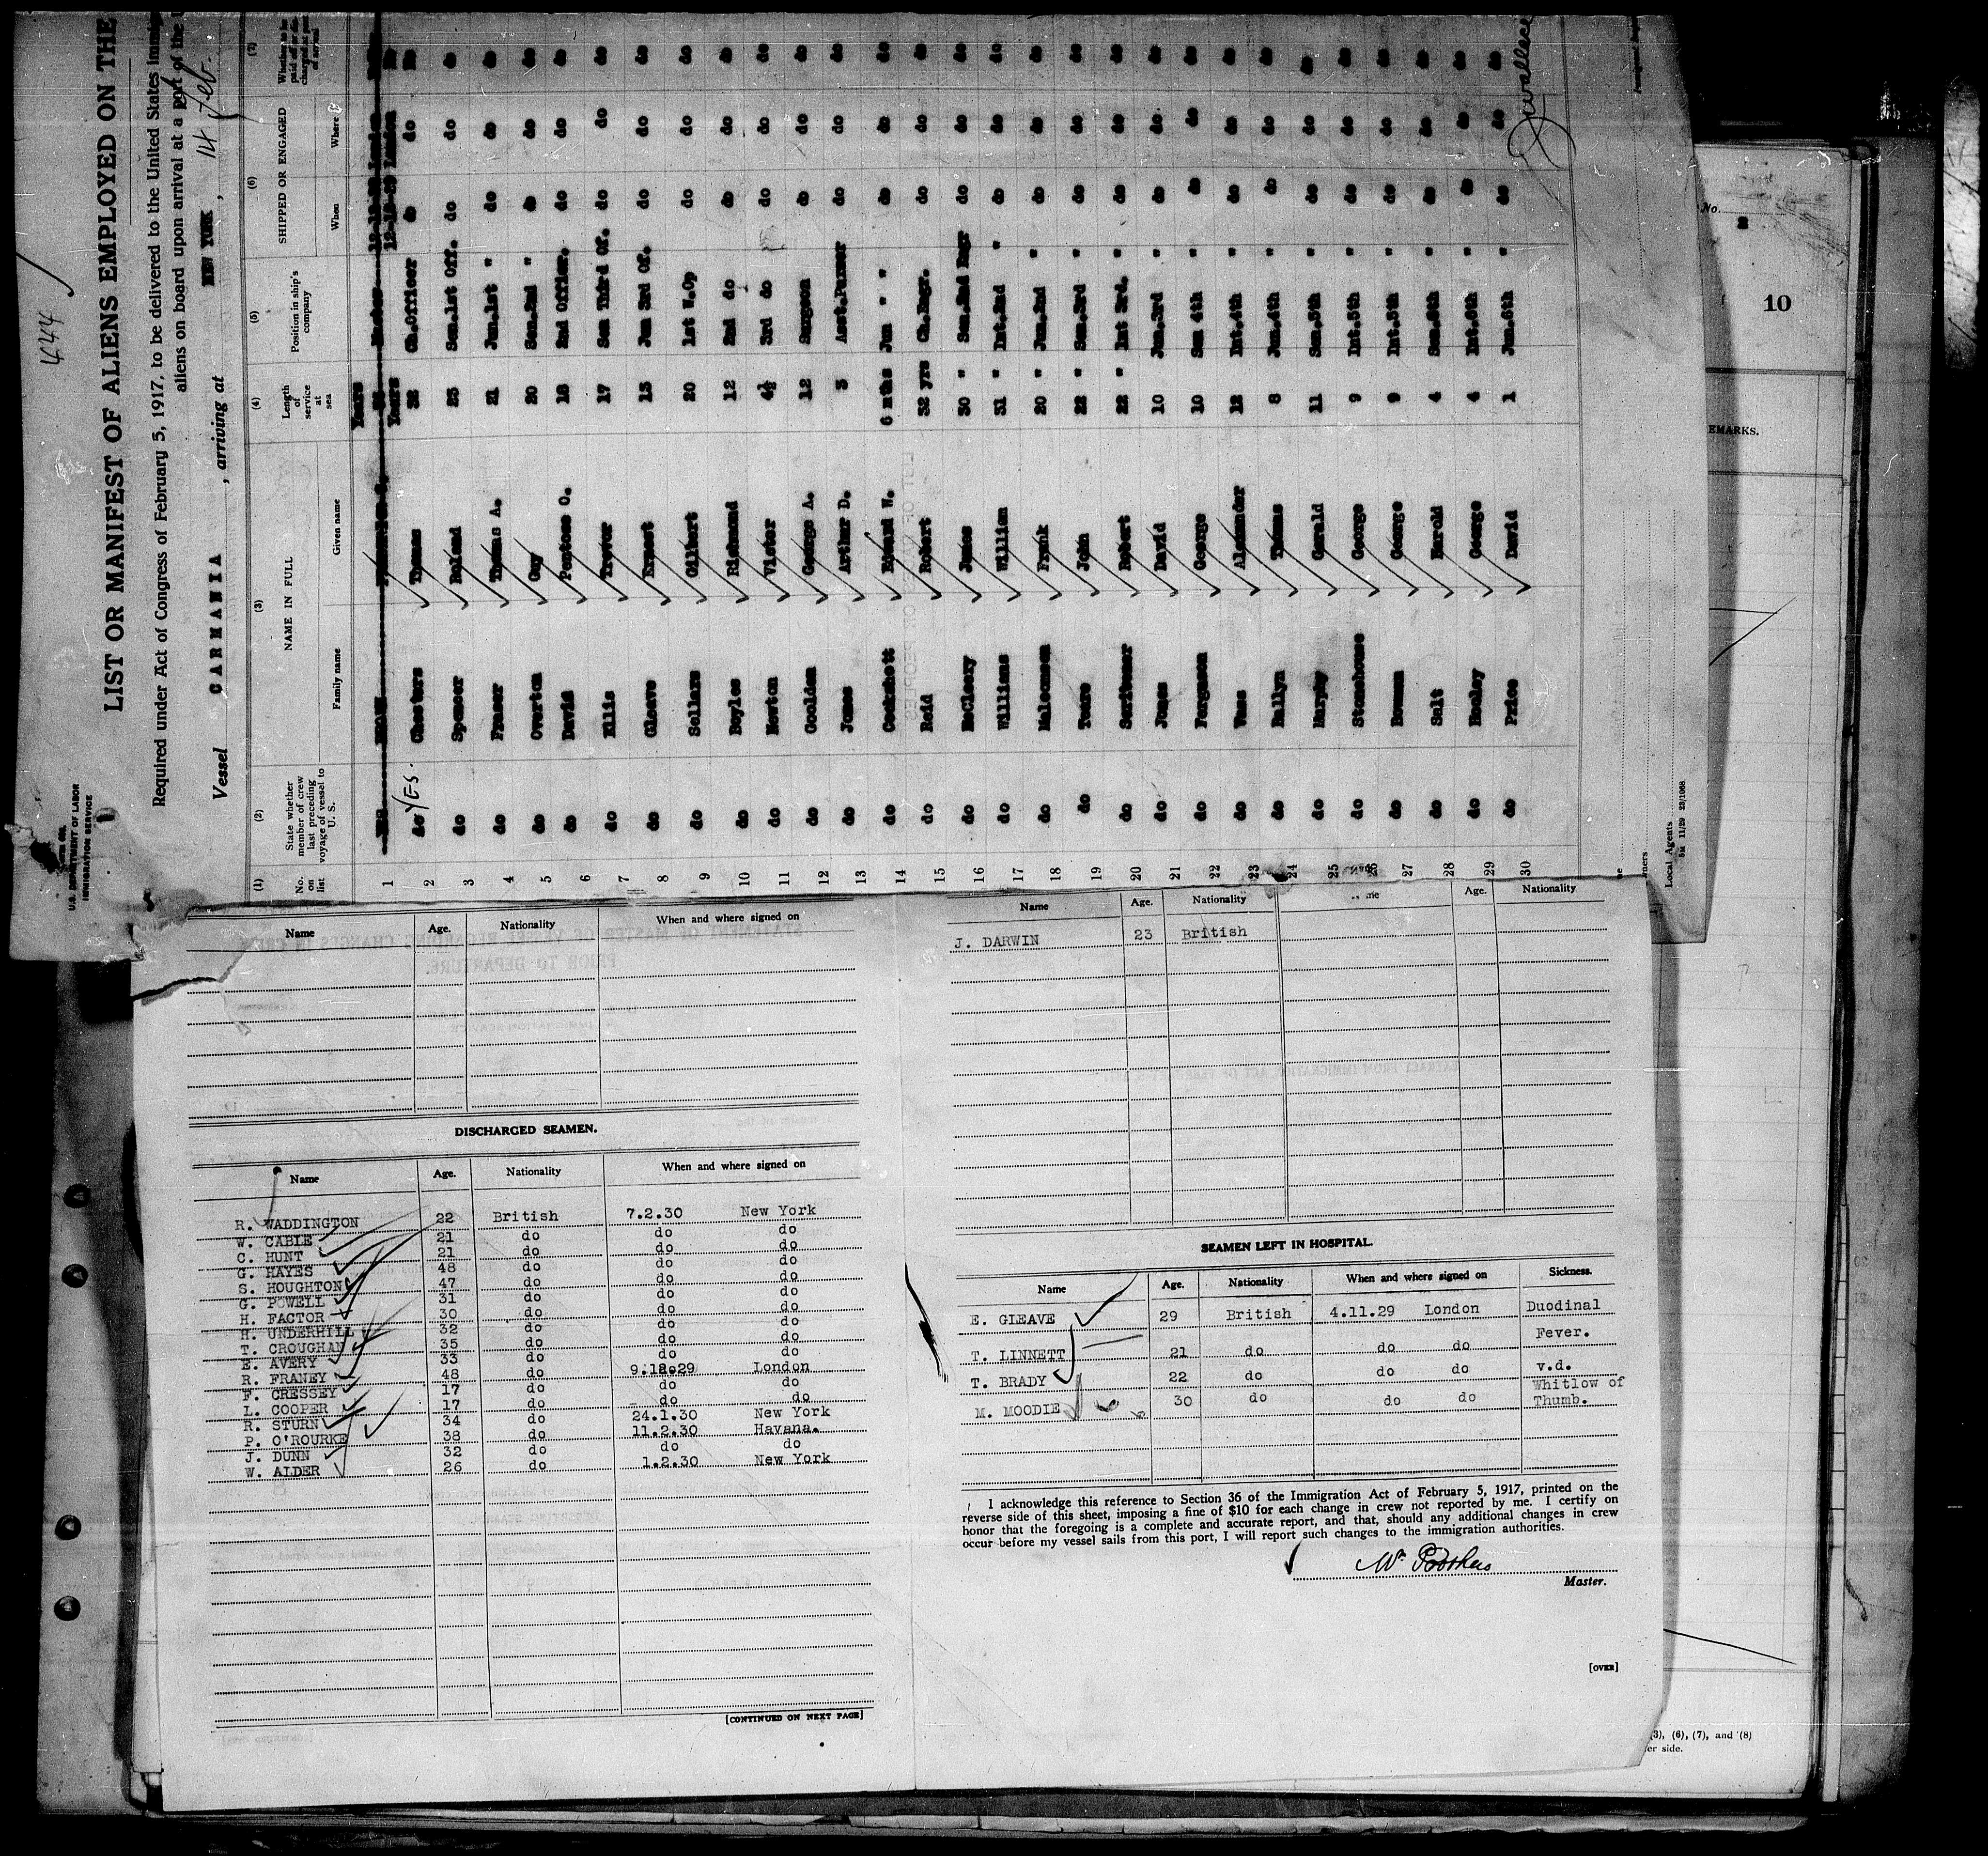 444
U.S. DEPARTMENT OF LABOR
IMMIGRATION SERVICE
LIST OR MANIFEST OF ALIENS EMPLOYED ON THE
Required under Act of Congress of February 5, 1917, to be delivered to the United States
aliens on board upon arrival at a port of the
Vessel CARMANIA , arriving at NEW YORK , 14 Feb.
(1) (2) (3) (4) (5) (6) (7)
No. on list State whether member of crew last preceding voyage of vessel to U. S. NAME IN FULL Length of service at sea Position in ship's company SHIPPED OR ENGAGED
Family name Given name When Where
Years
Years 12-12-29 London
1 do YES. Chesters Thomas 32 Ch.Officer do do do
2 do Spencer Roland 23 Sen.1st Off. do do do
3 do Fraser Thomas A. 21 Jun.1st " do do do
4 do Overton Guy 20 Sen.2nd " do do do
5 do David Penteose O. 18 2nd Officer. do do do
6 do Ellis Trevor 17 Sen Third Of. do do do
7 do Gleave Ernest 13 Jun 3rd Of. do do do
8 do Sellars Gilbert 20 1st W.Op do do do
9 do Boyles Richmond 12 2nd do do do do
10 do Newton Victor 4½ 3rd do do do do
11 do Goolden George A. 12 Surgeon do do do
12 do Jones Arthur D. 3 Asst.Purser do do do
13 do Cockshott Edward W. 6 mths Jun " " do do do
14 do Reid Robert 32 yrs Ch.Engr. do do do
15 do McCleery James 30 " Sen.2nd Engr do do do
16 do Williams William 31 " Int.2nd " do do do
17 do Malcomson Frank 20 " Jun.2nd " do do do
18 do Teare John 22 " Sen.3rd " do do do
19 do Scrivenor Robert 22 " Int 3rd. " do do do
20 do Jones David 10 Jun.3rd " do do do
21 do Ferguson George 10 Sen 4th " do do do
22 do Vass Alexander 12 Int.4th " do do do
23 do Ballyn Thomas 8 Jun.4th " do do do
24 do Murphy Gerald 11 Sen.5th " do do do
25 do Stonehouse George 9 Int.5th " do do do
26 do Bowman George 9 Int.5th " do do do
27 do Salt Harold 4 Sen.6th " do do do
28 do Healey George 4 Int.6th " do do do
29 do Price David 1 Jun.6th " do do do
30
Local Agents
5M 11/29 23/1068
No.
10
EMARKS.
Name Age. Nationality When and where signed on
DISCHARGED SEAMEN.
Name Age. Nationality When and where signed on
R. WADDINGTON 22 British 7.2.30 New York
W. CABLE 21 do do do
C. HUNT 21 do do do
G. HAYES 48 do do do
S. HOUGHTON 47 do do do
G. POWELL 31 do do do
H. FACTOR 30 do do do
H. UNDERHILL 32 do do do
T. CROUGHAN 35 do do do
E. AVERY 33 do do do
R. FRANEY 48 do 9.12.29 London
F. CRESSEY 17 do do do
L. COOPER 17 do do do
R. STURN 34 do 24.1.30 New York
P. O'ROURKE 38 do 11.2.30 Havana.
J. DUNN 32 do do do
W. ALDER 26 do 1.2.30 New York
[CONTINUED ON NEXT PAGE]
Name Age. Nationality Age. Nationality
J. DARWIN 23 British
SEAMEN LEFT IN HOSPITAL.
Name Age. Nationality When and where signed on Sickness.
E. GLEAVE 29 British 4.11.29 London Duodinal
Fever.
T. LINNETT 21 do do do
T. BRADY 22 do do do v.d.
M. MOODIE 30 do do do Whitlow of
Thumb.
I acknowledge this reference to Section 36 of the Immigration Act of February 5, 1917, printed on the
reverse side of this sheet, imposing a fine of $10 for each change in crew not reported by me. I certify on
honor that the foregoing is a complete and accurate report, and that, should any additional changes in crew
occur before my vessel sails from this port, I will report such changes to the immigration authorities.
Master.
[OVER]
(3), (6), (7), and (8)
er side.